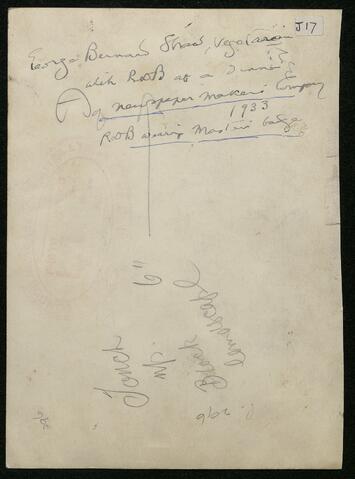 J17
George Bernard Shaw, Vegetarian
with RDB at a Dinner
of newspaper makers Company
1933
RDB wearing Masters badge
Touch
up
6"
Black